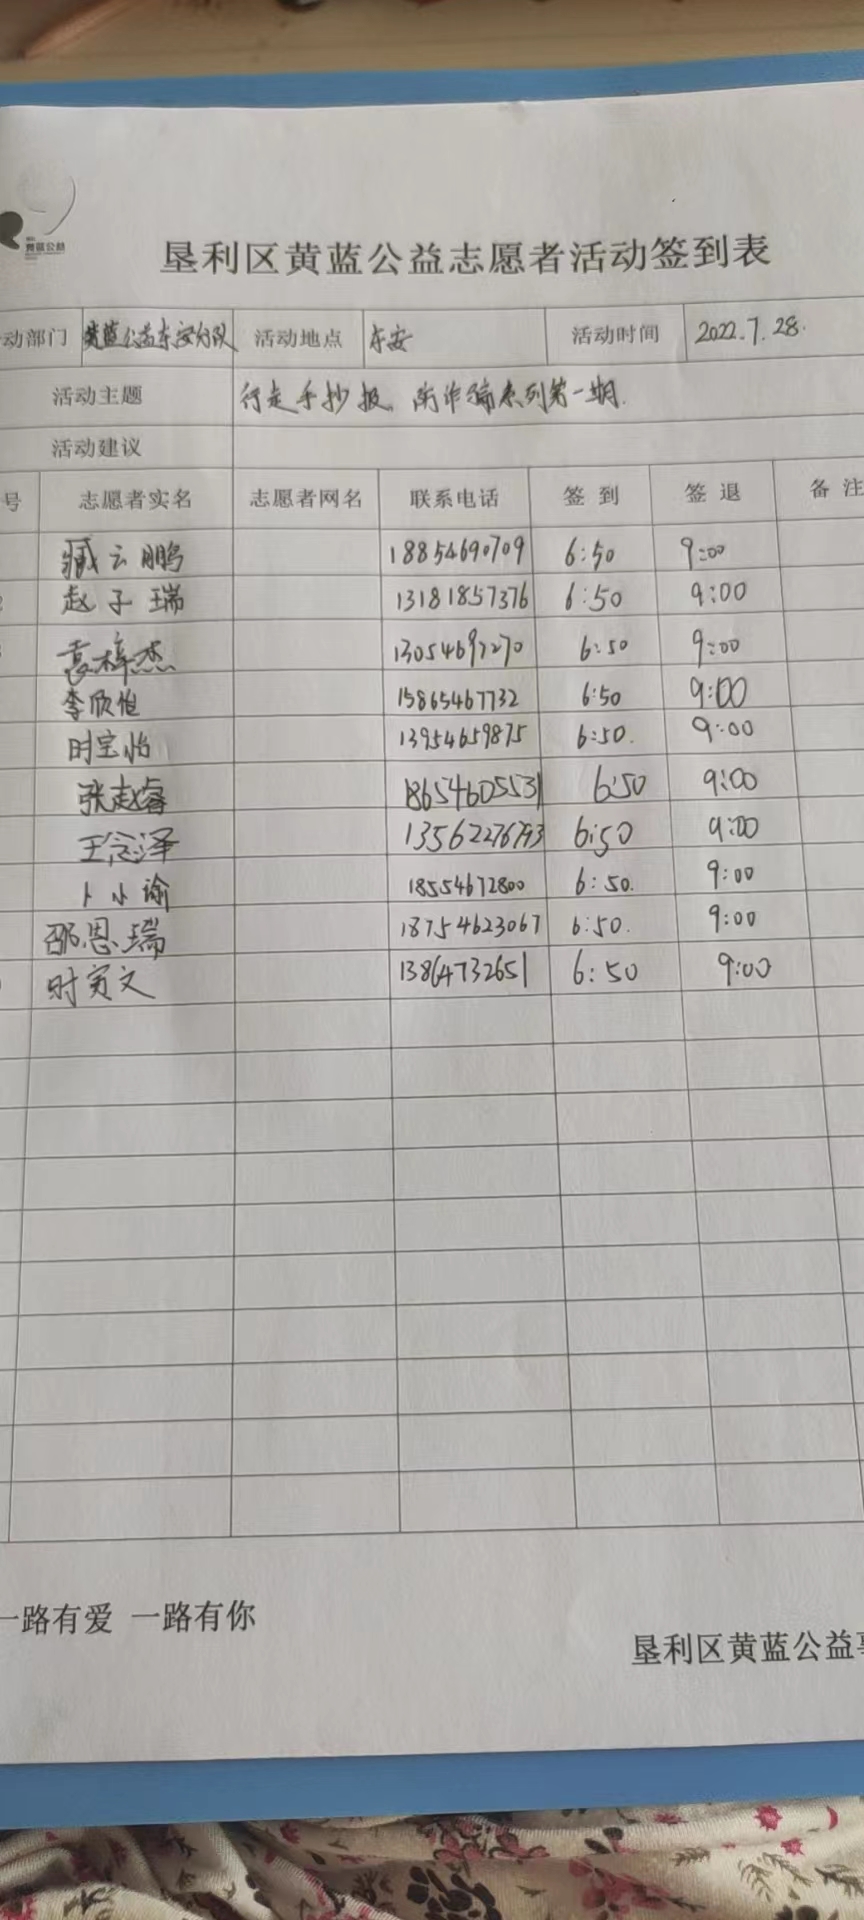 黄蓝公益
垦利区黄蓝公益志愿者活动签到表
动部门 黄蓝公益东安分队 活动地点 东安 活动时间 2022.7.28.
活动主题 行走手抄报、防诈骗系列第一期.
活动建议
号 志愿者实名 志愿者网名 联系电话 签 到 签 退 备 注
臧云鹏 18854690709 6:50 9:00
赵子瑞 13181857376 6:50 9:00
袁梓杰 13054697270 6:50 9:00
李欣怡 15865467732 6:50 9:00
时宝怡 13954659875 6:50. 9:00
张赵睿 18654605531 6:50 9:00
王念泽 13562276793 6:50 9:00
卜小谕 18554672800 6:50. 9:00
邵恩瑞 18754623067 6:50. 9:00
时寅文 13864732651 6:50 9:00
一路有爱 一路有你
垦利区黄蓝公益事